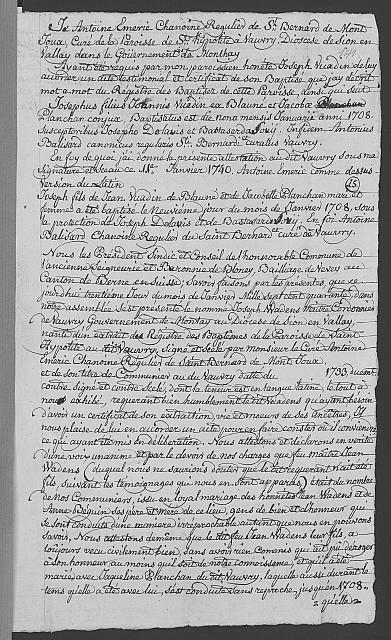 Je Antoine Emeric Chanoine Regulier de St. Bernard de Mont
Joux, Curé de la Paroisse de St. Hipolite à Vauvry, Diocese de Sion en
Vallay dans le Gouvernement de Monthay
Ayant été requis par mon paroissien honête Joseph Viadin de luy
accorder un acte testimonial et certificat de son Baptisé que j'ay de
mot a mot du Registre des Baptisez de cette Paroisse, ainsi que suit
Josephus filius Johannis Viadin ex Blaune et Jacobæ Blanchan
Planchan conjux Baptisatus est die nona mensis Januarii anni 1708.
Susceptoribus Josepho Delavis et In fidem Antonius
Balisard canonicus regularis St. Bernardi curatus Vauvry.
En foy de quoi j'ai donné la présente attestation au dit Vauvry sous ma
signature et seau ce Janvier 1740. Antoine Emeric comme dessus
Version du Latin (15)
Joseph fils de Jean Viadin de Blaune et de Jacobée Blanchan mari et
femme a été baptisé le Neuvieme jour du mois de Janvier 1708, sous
la protection de Joseph Delavis et de En foi Antoine
Balisard Chanoine Regulier du Saint Bernard et curé de Vauvry.
Nous les President Sindic et Conseil de l'honorable Commune de
l'ancienne Seigneurie et Baronnie de Bloney, Bailliage de Vevey au
Canton de Berne en Suisse; Savoir faisons par les presentes que ce
jourd'hui trentieme Jour du mois de Janvier Mille Sept cent quarante, dans
notre assemblée Se st presenté le nommé Joseph Wadens Maitre Cordonnier
de Vauvry Gouvernement de Monthay au Diocese de Sion en Vallay,
nanti d'un extrait des Registre des Baptemes de la Paroisse de Saint
Hypolite au dit Vauvry, Signé et Selé par Monsieur le Curé Antoine
Emeric Chanoine Regulier de Saint Bernard de Mont Joux;
et de son titre de Communier au du Vauvry daté du 1733, duement
contre Signé et contre Selé, dont la teneur est en langue latine, le tout à
nous exhibé, requerant bien humblement le dit Wadens qu'ayant besoin
d'avoir un certificat de son extraction vie et moeurs de ses Ancêtres, Il
nous plaise de lui en accorder un acte pour en faire conster où il conviendra
ce qui ayant été mis en délibération. Nous attestons et déclarons en verité
d'une voix unanime et par le devoir de nos charges que feu maitre Jean
Wadens (duquel nous ne saurions douter que le dit requerant n'ait été
fils, suivant les témoignages qui nous en sont apparus) étoit du nombre
de nos Communiers, issu en loyal mariage des honnêtes Jean Wadens et de
Anne Beguin ses pere et mere de ce lieu, gens de bien et d'honneur qui
se sont conduits d'une maniere irreprochable autant que nous en pouvons
savoir, Nous attestons de même que le dit feu Jean Wadens leur fils, a
toujours vecu civilement bien, Sans avoir rien Commis qui ait pu déroger
à son honneur au moins qui soit de notre connoissance, et qu'il a été
marié avec Jaqueline Blanchan du dit Vauvry, laquelle aussi durant le
tems qu'elle a été avec lui, s'est conduite sans reproche, jusqu'en 1708.
quelle